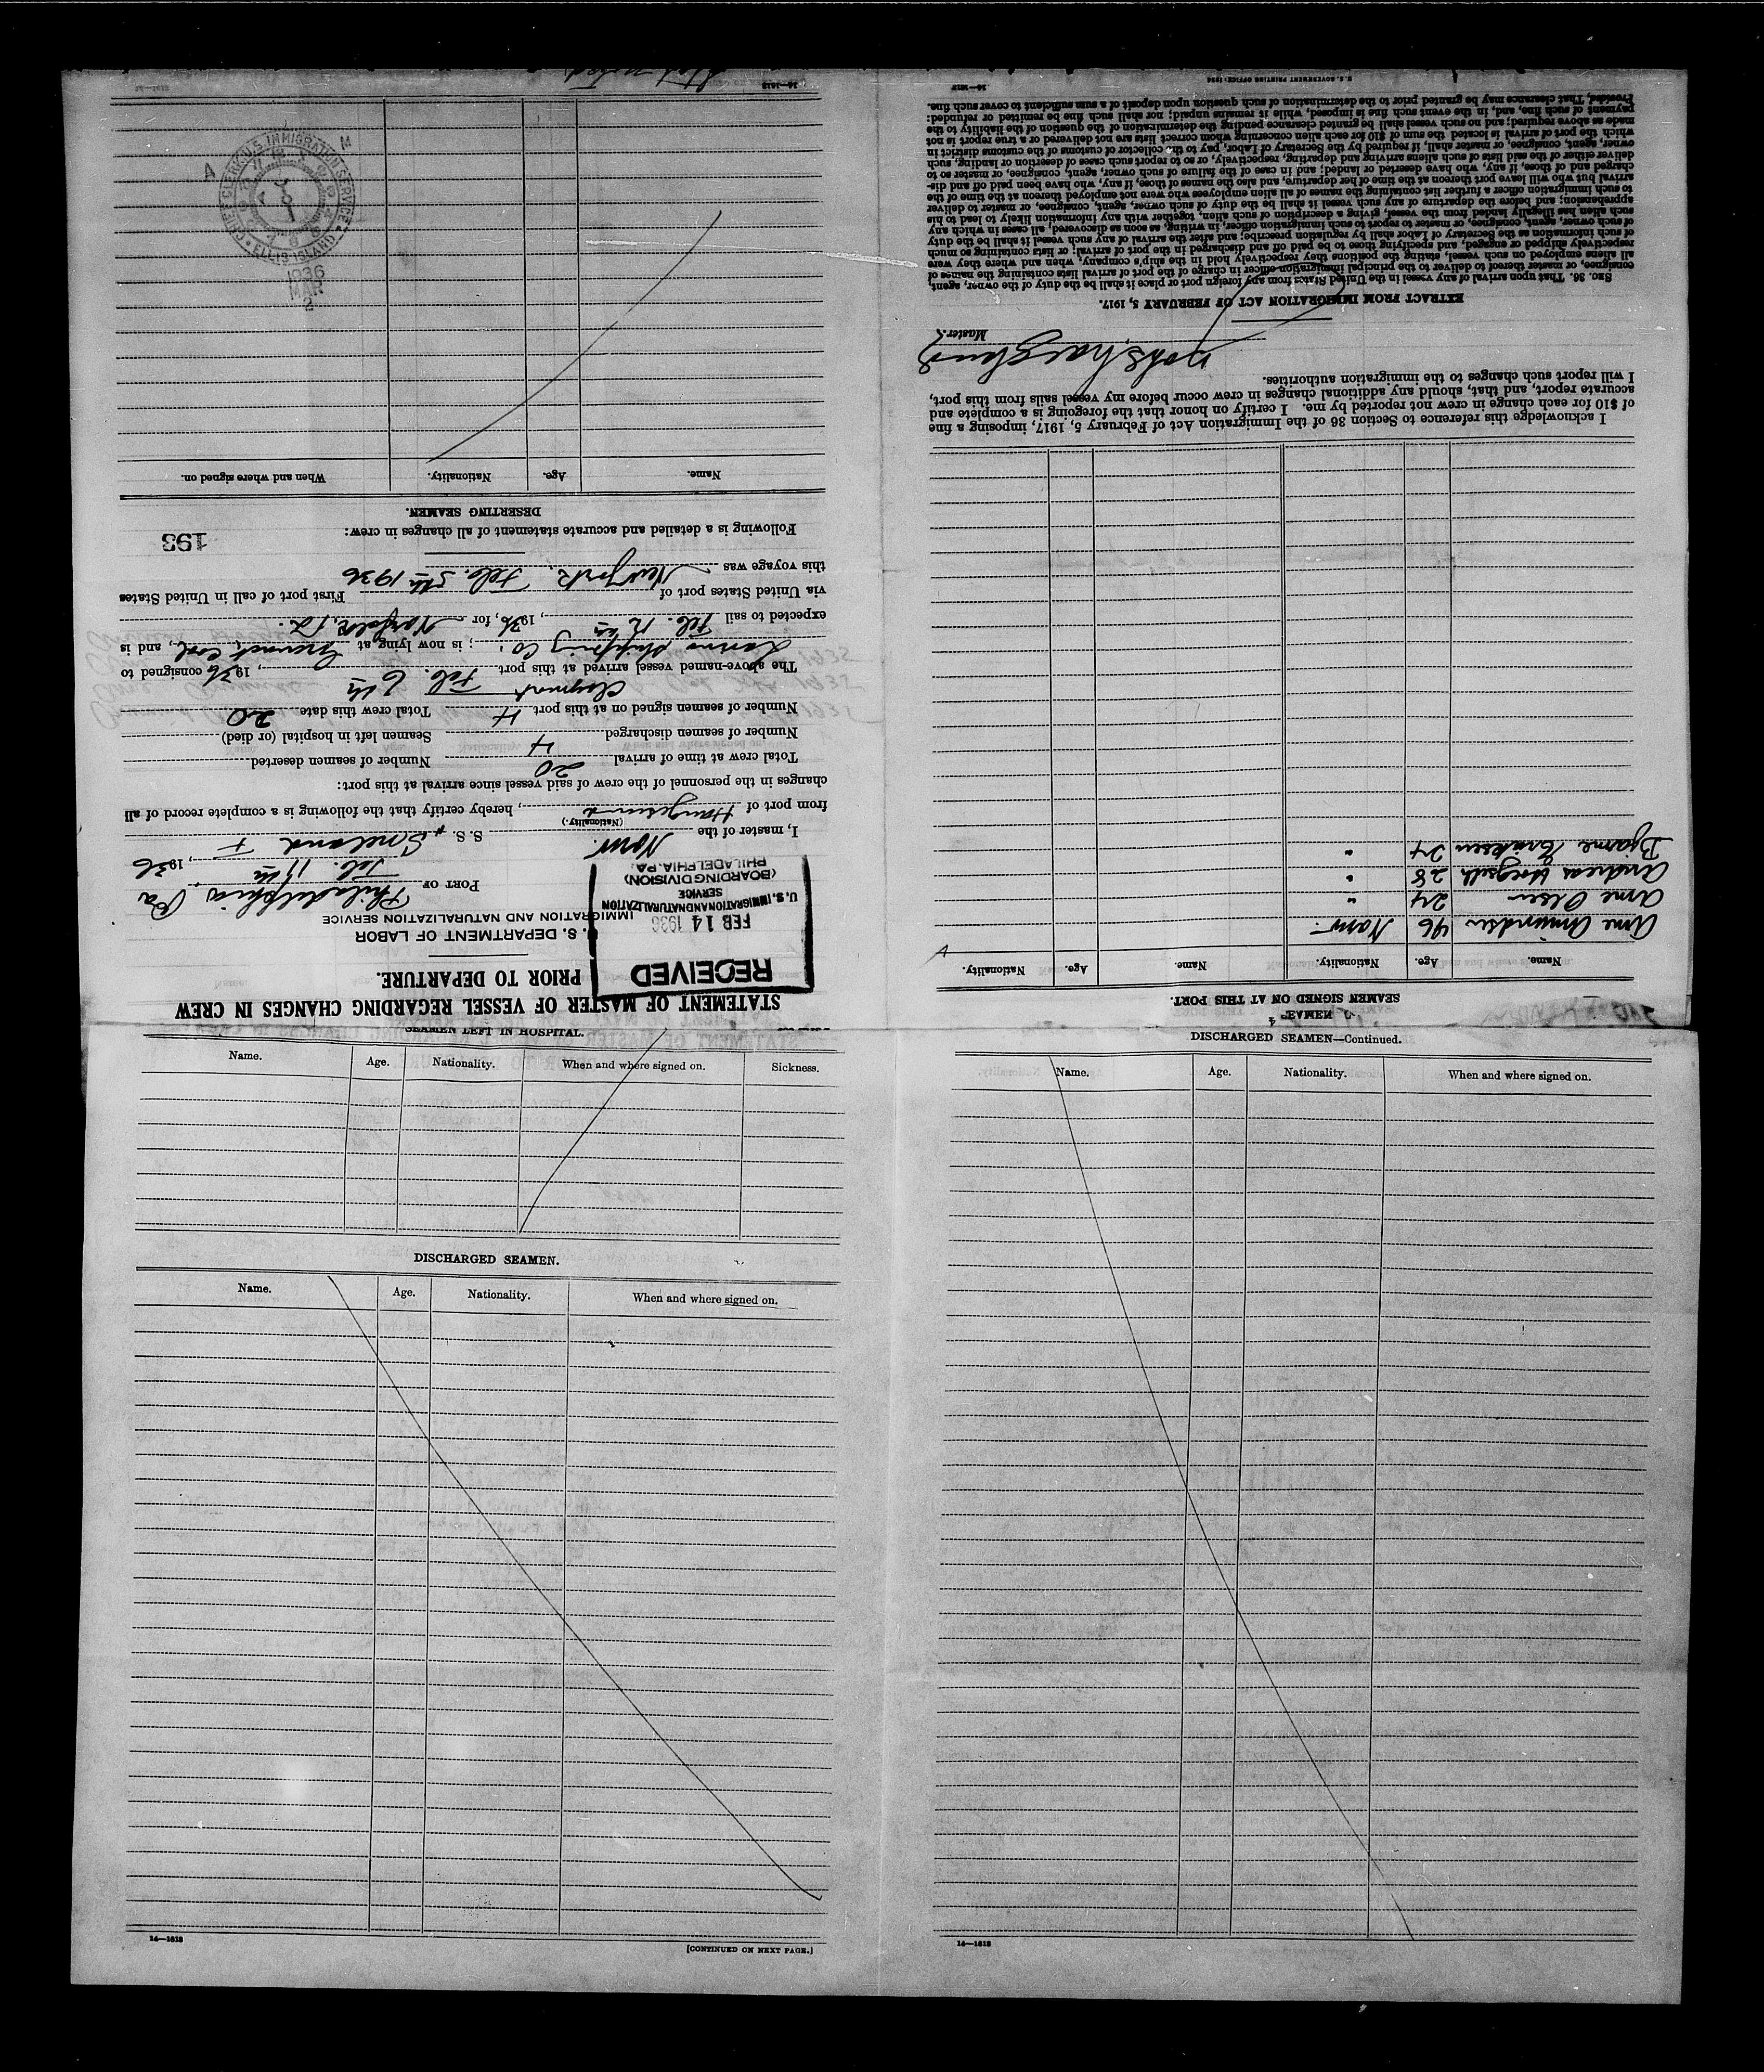 STATEMENT OF MASTER OF VESSEL REGARDING CHANGES IN CREW
PRIOR TO DEPARTURE.
RECEIVED
FEB 14 1936
U. S. IMMIGRATION AND NATURALIZATION
SERVICE
(BOARDING DIVISION)
PHILADELPHIA, PA.
U. S. DEPARTMENT OF LABOR
IMMIGRATION AND NATURALIZATION SERVICE
PORT OF Philadelphia, Pa
Feb. 11th, 1936
I, master of the Norw. S. S. "
(Nationality.)
from port of Haugesund, hereby certify that the following is a complete record of all
changes in the personnel of the crew of said vessel since arrival at this port:
Total crew at time of arrival 20 Number of seamen deserted
Number of seamen discharged 4 Seamen left in hospital (or died)
Number of seamen signed on at this port 4 Total crew this date 20
Claymont
The above-named vessel arrived at this port Feb. 6th, 1936 consigned to
Shipping Co. ; is now lying at Coal, and is
expected to sail Feb. 12th, 1936, for Norfolk, Va.
via United States port of First port of call in United States
this voyage was New York. Feb. 5th 1936
Following is a detailed and accurate statement of all changes in crew:
193
DESERTING SEAMEN.
Name. Age. Nationality. When and where signed on.
CHIEF CLERK U.S. IMMIGRATION SERVICE
ELLIS ISLAND
A M
1936
MAR
2
14—1613
SEAMEN SIGNED ON AT THIS PORT.
Name. Age. Nationality. Name. Age. Nationality.
Arne Amundsen 46 Norw.
Arne Olsen 24 "
Andreas 28 "
Bjarne Eriksen 24 "
I acknowledge this reference to Section 36 of the Immigration Act of February 5, 1917, imposing a fine
of $10 for each change in crew not reported by me. I certify on honor that the foregoing is a complete and
accurate report, and that, should any additional changes in crew occur before my vessel sails from this port,
I will report such changes to the immigration authorities.
Master.
EXTRACT FROM IMMIGRATION ACT OF FEBRUARY 5, 1917.
SEC. 36. That upon arrival of any vessel in the United States from any foreign port or place it shall be the duty of the owner, agent,
consignee, or master thereof to deliver to the principal immigration officer in charge of the port of arrival lists containing the names of
all aliens employed on such vessel, stating the positions they respectively hold in the ship's company, when and where they were
respectively shipped or engaged, and specifying those to be paid off and discharged in the port of arrival; or lists containing so much
of such information as the Secretary of Labor shall by regulation prescribe; and after the arrival of any such vessel it shall be the duty
of such owner, agent, consignee, or master to report to such immigration officer, in writing, as soon as discovered, all cases in which any
such alien has illegally landed from the vessel, giving a description of such alien, together with any information likely to lead to his
apprehension; and before the departure of any such vessel it shall be the duty of such owner, agent, consignee, or master to deliver
to such immigration officer a further list containing the names of all alien employees who were not employed thereon at the time of the
arrival but who will leave port thereon at the time of her departure, and also the names of those, if any, who have been paid off and dis-
charged and of those, if any, who have deserted or landed; and in case of the failure of such owner, agent, consignee, or master so to
deliver either of the said lists of such aliens arriving and departing, respectively, or so to report such cases of desertion or landing, such
owner, agent, consignee, or master shall, if required by the Secretary of Labor, pay to the collector of customs of the customs district in
which the port of arrival is located the sum of $10 for each alien concerning whom correct lists are not delivered or a true report is not
made as above required; and no such vessel shall be granted clearance pending the determination of the question of the liability to the
payment of such fine, and, in the event such fine is imposed, while it remains unpaid; nor shall such fine be remitted or refunded:
Provided, That clearance may be granted prior to the determination of such question upon deposit of a sum sufficient to cover such fine.
14—1613
U. S. GOVERNMENT PRINTING OFFICE: 1934
SEAMEN LEFT IN HOSPITAL.
Name. Age. Nationality. When and where signed on. Sickness.
DISCHARGED SEAMEN.
Name. Age. Nationality. When and where signed on.
14—1613
[CONTINUED ON NEXT PAGE.]
DISCHARGED SEAMEN—Continued.
Name. Age. Nationality. When and where signed on.
14—1613